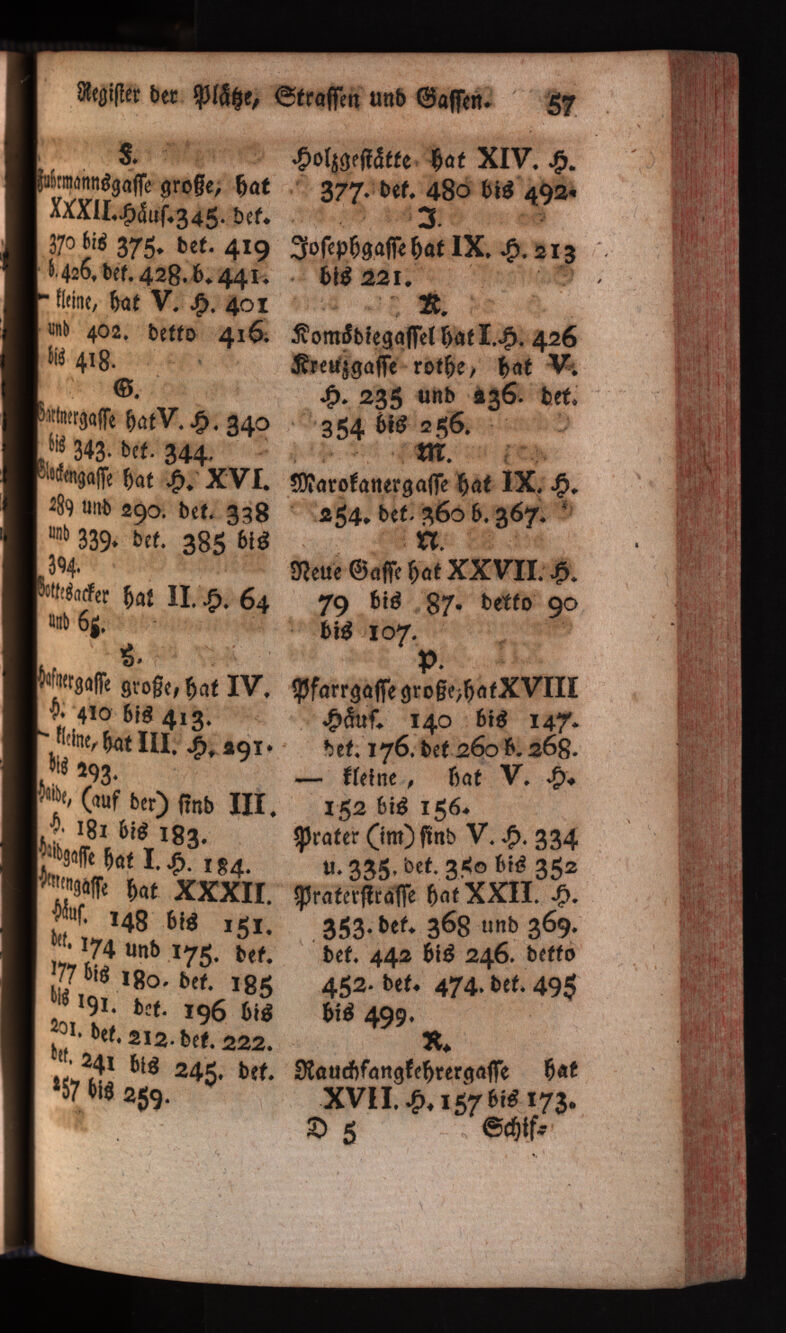 Register der Plätze, Strassen und Gassen. 57
F.
Fuhrmannsgasse große, hat
XXXII. Häus. 345. det.
370 bis 375. det. 419
b. 426. det. 428. b. 441.
— kleine, hat V. H. 401
und 402. detto 416.
bis 418.
G.
Gärtnergasse hat V. H. 340
bis 343. det. 344.
Glockengasse hat H. XVI.
289 und 290. det. 338
und 339. det. 385 bis
394.
Gottesacker hat II. H. 64
und 65.
H.
Hafnergasse große, hat IV.
H. 410 bis 413.
— kleine, hat III. H. 291.
bis 293.
Haide, (auf der) sind III.
H. 181 bis 183.
Haidgasse hat I. H. 184.
hat XXXII.
Häus. 148 bis 151.
det. 174 und 175. det.
177 bis 180. det. 185
bis 191. det. 196 bis
201. det. 212. det. 222.
det. 241 bis 245. det.
257 bis 259.
Holzgestätte hat XIV. H.
377. det. 480 bis 492.
J.
Josephgasse hat IX. H. 213
bis 221.
K.
Komödiegassel hat I. H. 426
Kreutzgasse rothe, hat V.
H. 235 und 236. det.
354 bis 256.
M.
Marokanergasse hat IX. H.
254. det. 360 b. 367.
N.
Neue Gasse hat XXVII. H.
79 bis 87. detto 90
bis 107.
P.
Pfarrgasse große, hat XVIII
Häus. 140 bis 147.
det. 176. det 260 b. 268.
— kleine, hat V. H.
152 bis 156.
Prater (im) sind V. H. 334
u. 335. det. 350 bis 352
Praterstrasse hat XXII. H.
353. det. 368 und 369.
det. 442 bis 246. detto
452. det. 474. det. 495
bis 499.
R.
Rauchfangkehrergasse hat
XVII. H. 157 bis 173.
D 5 Schif-